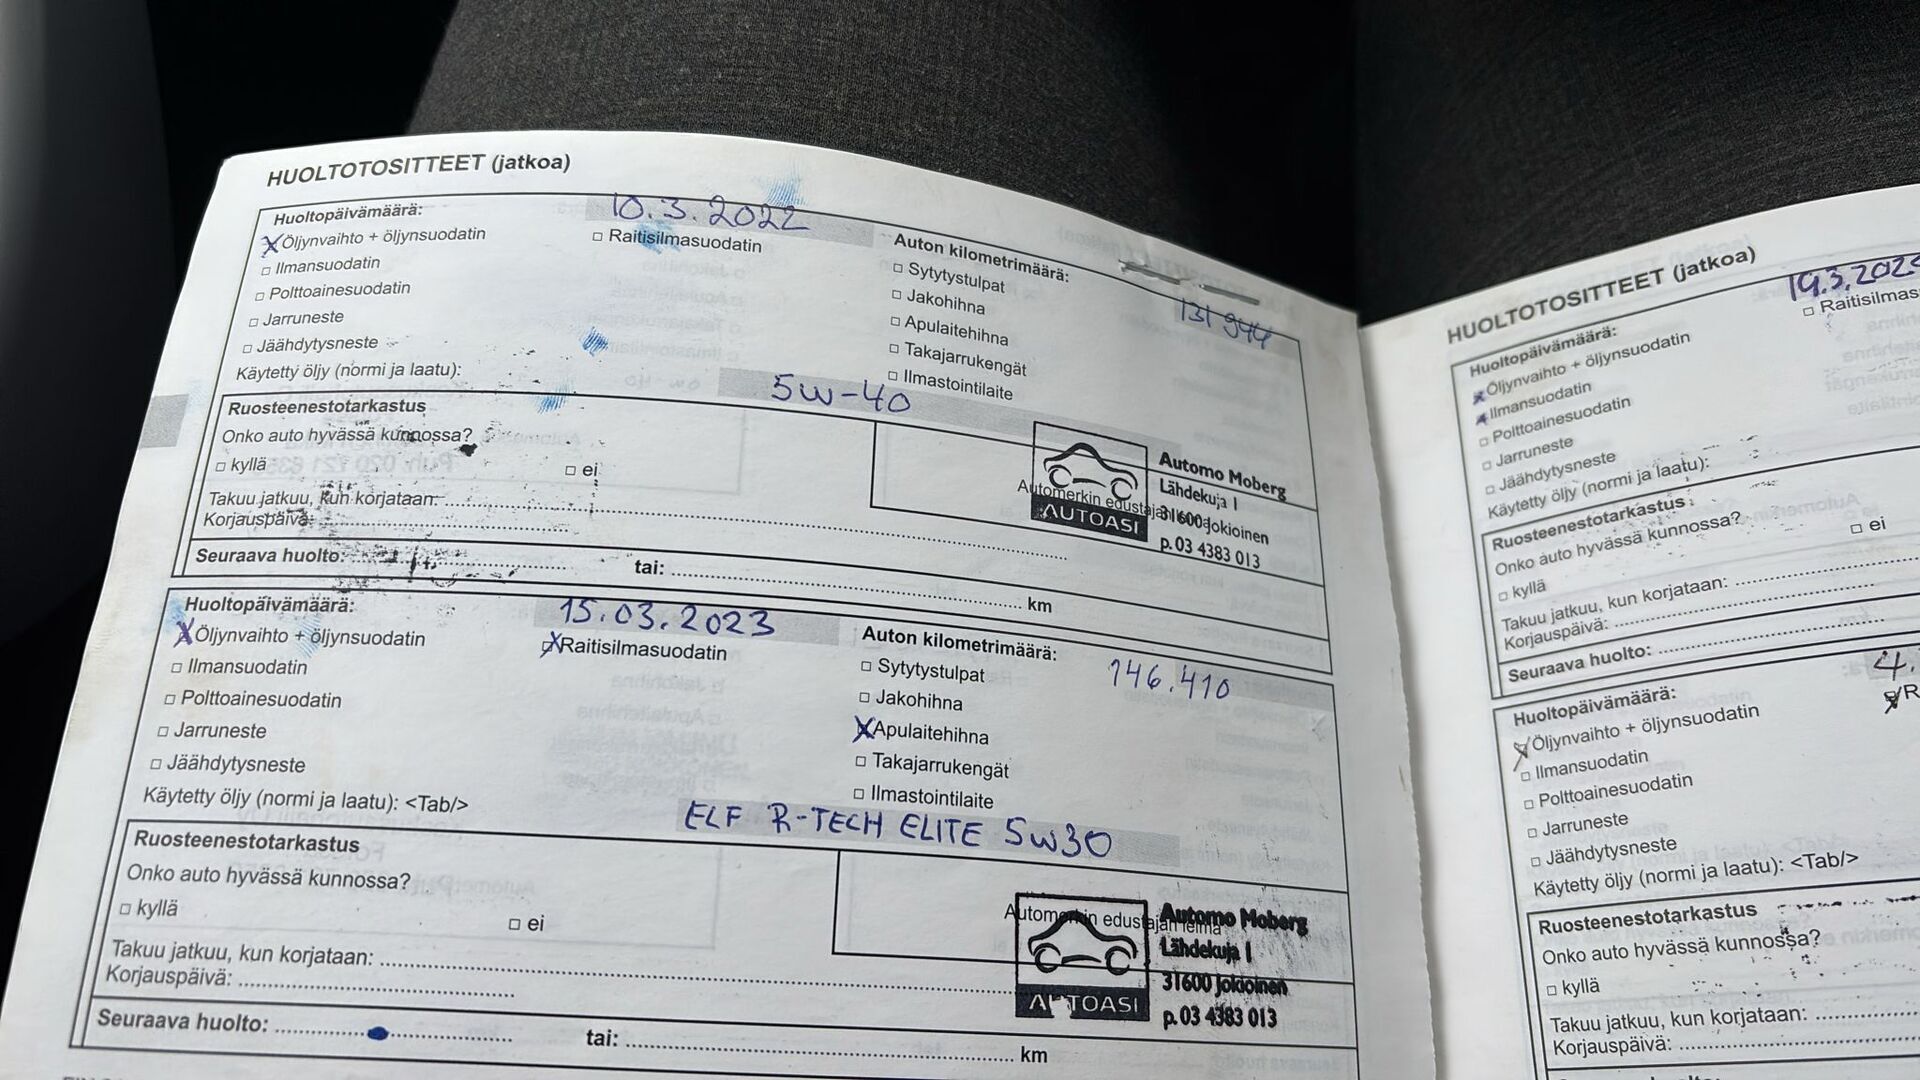 HUOLTOTOSITTEET (jatkoa)
Huoltopäivämäärä: 10.3.2022
Öljynvaihto + öljynsuodatin
Raitisilmasuodatin
Ilmansuodatin
Polttoainesuodatin
Jarruneste
Jäähdytysneste
Auton kilometrimäärä: 131 944
Sytytystulpat
Jakohihna
Apulaitehihna
Takajarrukengät
Ilmastointilaite
Käytetty öljy (normi ja laatu): 5W-40
Ruosteenestotarkastus
Onko auto hyvässä kunnossa?
kyllä
ei
Takuu jatkuu, kun korjataan:
Korjauspäivä:
Automerkin edustajan
AUTOASI
Automo Moberg
Lähdekuja 1
31600 Jokioinen
p. 03 4383 013
Seuraava huolto: tai: km
Huoltopäivämäärä: 15.03.2023
Öljynvaihto + öljynsuodatin
Raitisilmasuodatin
Ilmansuodatin
Polttoainesuodatin
Jarruneste
Jäähdytysneste
Auton kilometrimäärä: 146.410
Sytytystulpat
Jakohihna
Apulaitehihna
Takajarrukengät
Ilmastointilaite
Käytetty öljy (normi ja laatu): <Tab/> ELF R-TECH ELITE 5W30
Ruosteenestotarkastus
Onko auto hyvässä kunnossa?
kyllä
ei
Takuu jatkuu, kun korjataan:
Korjauspäivä:
Automerkin edustajan leima
AUTOASI
Automo Moberg
Lähdekuja 1
31600 Jokioinen
p. 03 4383 013
Seuraava huolto: tai: km
HUOLTOTOSITTEET (jatkoa)
Huoltopäivämäärä: 19.3.202
Öljynvaihto + öljynsuodatin
Raitisilmas
Ilmansuodatin
Polttoainesuodatin
Jarruneste
Jäähdytysneste
Käytetty öljy (normi ja laatu):
Ruosteenestotarkastus
Onko auto hyvässä kunnossa?
kyllä
ei
Takuu jatkuu, kun korjataan:
Korjauspäivä:
Seuraava huolto:
Huoltopäivämäärä: 4.
Öljynvaihto + öljynsuodatin
R
Ilmansuodatin
Polttoainesuodatin
Jarruneste
Jäähdytysneste
Käytetty öljy (normi ja laatu): <Tab/>
Ruosteenestotarkastus
Onko auto hyvässä kunnossa?
kyllä
Takuu jatkuu, kun korjataan:
Korjauspäivä: